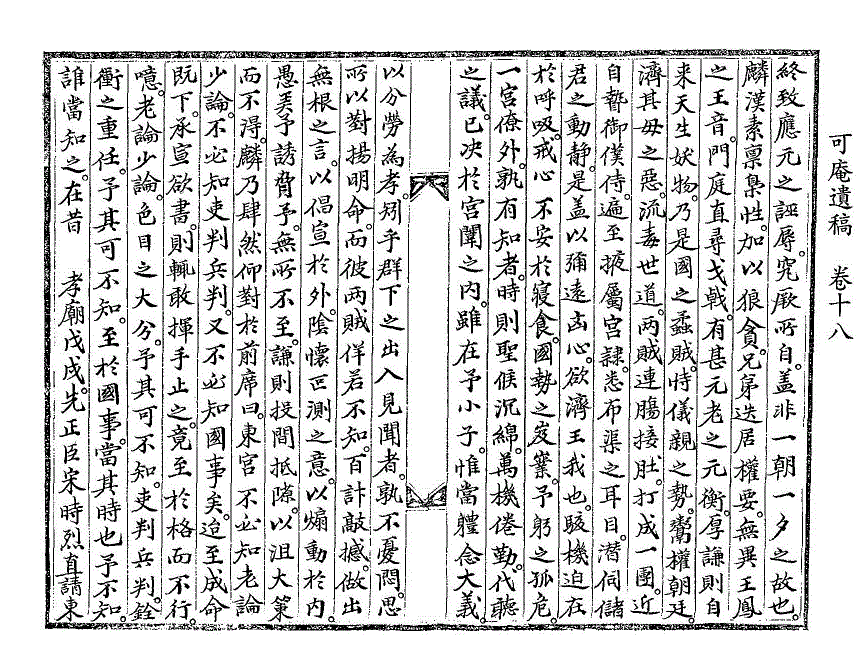 可庵遺稿　卷十八
終致應元之誣辱。究厥所自。盖非一朝一夕之故也。
麟漢素禀梟性。加以狼貪。兄弟迭居權要。無異王鳳
之王音。門庭直尋戈戟。有甚元老之元衡。厚謙則自
来天生妖物。乃是國之蟊賊。恃儀親之勢。鬻權朝廷。
濟其毋之惡。流毒世道。兩賊連膓接肚。打成一團。近
自暬御僕侍。遍至掖屬宮隷。悉布渠之耳目。潛伺儲
君之動靜。是盖以彌遠凶心。欲濟王我也。駭機迫在
於呼吸。戒心 不安於寢食。國勢之岌嶪。予躬之孤危。
一宮僚外。孰有知者。時則聖候沉綿。萬機倦勤。代聽
之議。已决於宮闈之內。雖在予小子。惟當軆念大義。
以分勞為孝。矧乎群下之出入見聞者。孰不憂悶。思
所以對揚明命。而彼兩賊佯若不知。百計敲撼。做出
無根之言。以倡宣於外。陰懷叵測之意。以煽動於內。
愚弄予誘脅予。無所不至。謙則投間抵隙。以沮大策
而不得。麟乃肆然仰對於前席曰。東宮不必知老論
少論。不必知吏判兵判。又不必知國事矣。迨至成命
既下。承宣欲書。則輒敢揮手止之。竟至於格而不行。
噫。老論少論。色目之大分。予其可不知。吏判兵判。銓
衡之重任。予其可不知。至於國事。當其時也。予不知。
誰當知之。在昔　孝廟戊戌。先正臣宋時烈直請東